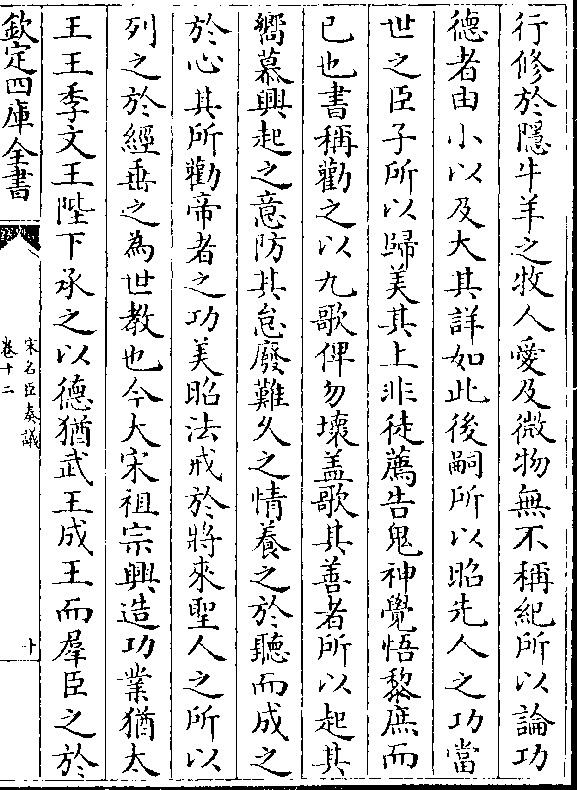 行修於隱牛羊之牧人愛及微物無不稱紀所以論功
德者由小以及大其詳如此後嗣所以昭先人之功當
世之臣子所以歸美其上非徒薦告鬼神覺悟黎庶而
已也書稱勸之以九歌俾勿壞盖歌其善者所以起其
嚮慕興起之意防其怠廢難久之情養之於聽而成之
於心其所勸帝者之功美昭法戒於將來聖人之所以
列之於經垂之為世教也今大宋祖宗興造功業猶太
王王季文王陛下承之以德猶武王成王而羣臣之於
欽定四庫全書
宋名臣奏議
卷十二
十